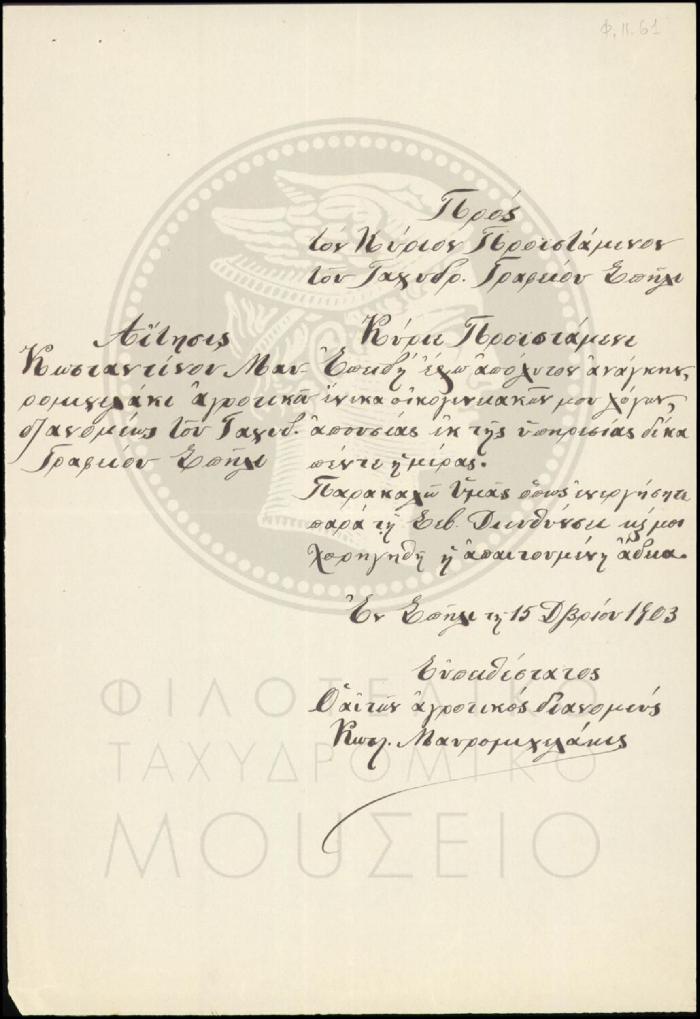 Φ.Π.61
Πρός
τόν Κύριον Προϊστάμενον
τοῦ Ταχυδρ. Γραφίου Σπήλι
Αἴτησις
Κωσταντίνου Μαυ-
ρομιχελάκι ἀγροτικοῦ
διανομέως τοῦ Ταχυδ.
Γραφίου Σπήλι
Κύριε Προϊστάμενε
Ἐπειδή ἔχω ἀπόλυτον ἀνάγκην,
ἕνεκα οἰκογενιακῶν μου λόγων,
ἀπουσίας ἐκ τῆς ὑπηρεσίας δέκα
πέντε ἡμέρας.
Παρακαλῶ Ὑμᾶς ὅπως ἐνεργήσητε
παρά τῇ Σεβ. Διευθύνσει κ μοι
χορηγηθῆ ἡ ἀπαιτουμένη ἄδεια.
Ἐν Σπήλι τῃ 15 Δβρίου 1903
Εὐπειθέστατος
Ὁ αἰτῶν ἀγροτικός διανομεύς
Κωτ. Μαυρομιχελάκις
ΦΙΛΟΤΕΛΙΚΟ
ΤΑΧΥΔΡΟΜΙΚΟ
ΜΟΥΣΕΙΟ